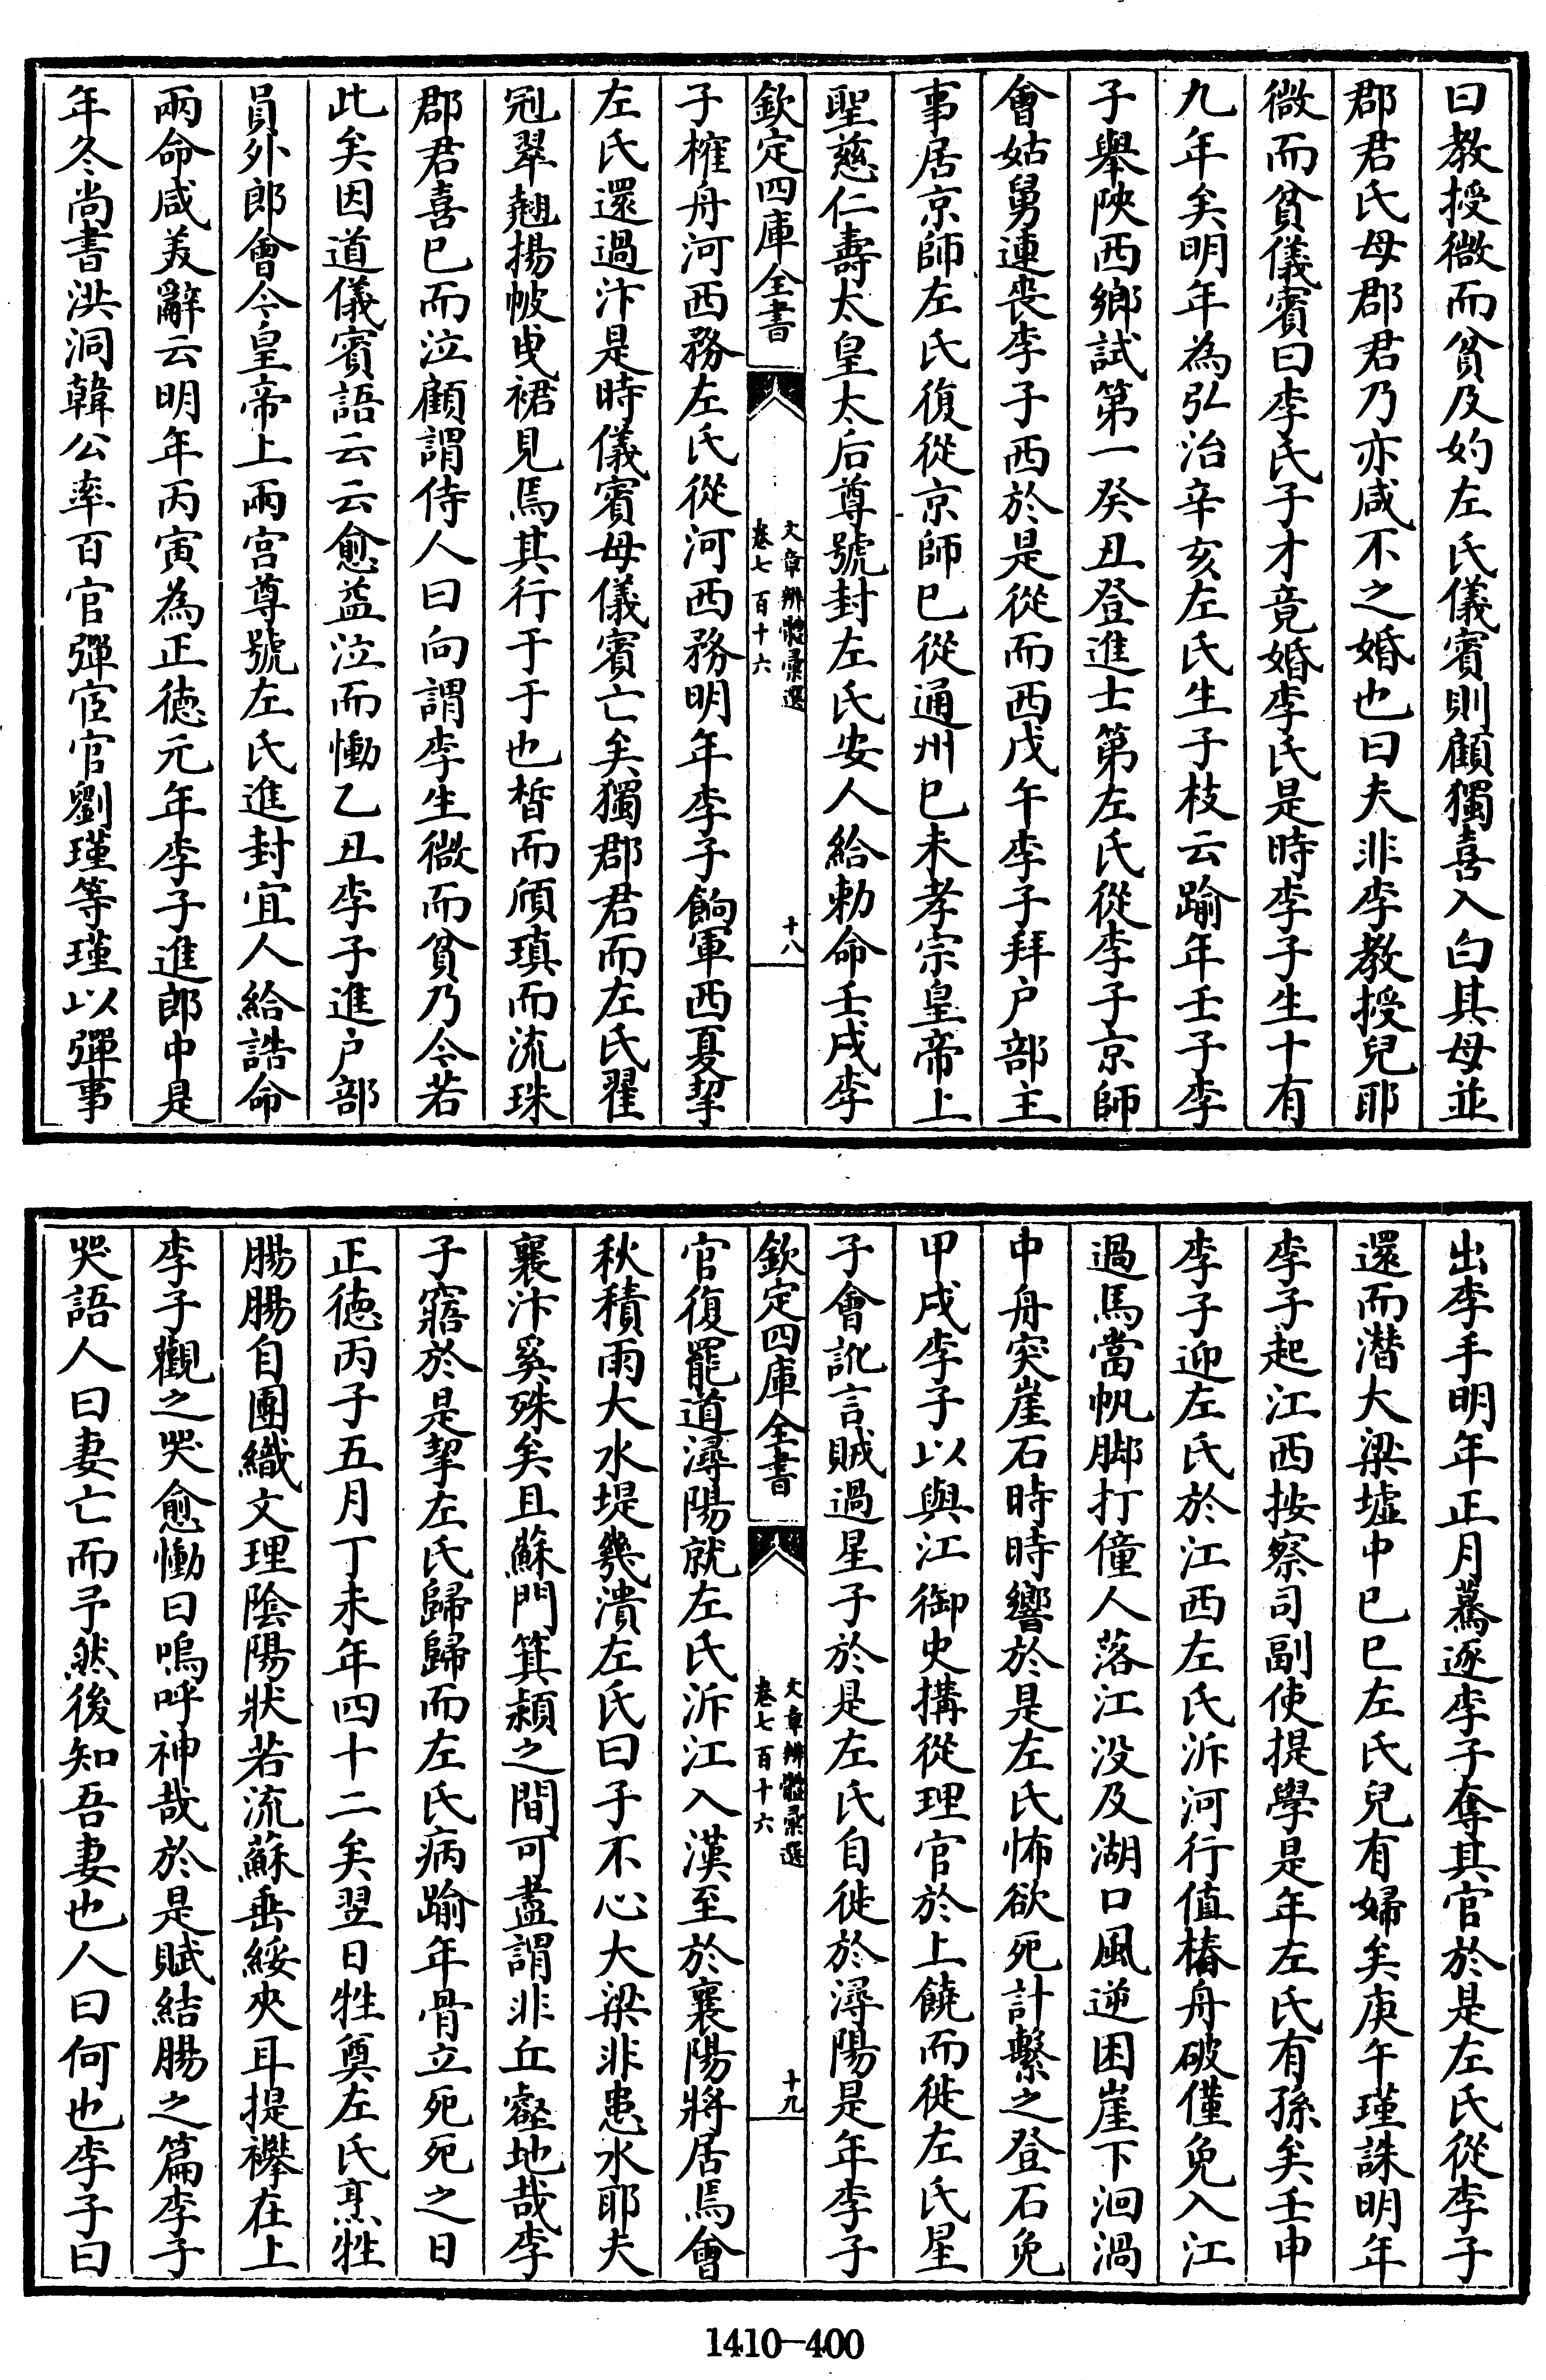 曰教授微而貧及妁左氏儀賓則顧獨喜入白其母並
郡君氏母郡君乃亦咸不之婚也曰夫非李教授兒耶
微而貧儀賓曰李氏子才竟婚李氏是時李子生十有
九年矣明年為弘治辛亥左氏生子枝云踰年壬子李
子舉陜西鄉試第一癸丑登進士第左氏從李子京師
會姑舅連喪李子西於是從而西戊午李子拜户部主
事居京師左氏復從京師已從通州已未孝宗皇帝上
聖慈仁壽太皇太后尊號封左氏安人給勅命壬戌李
欽定四庫全書
文章辨體彙選
卷七百十六
十八
子榷舟河西務左氏從河西務明年李子餉軍西夏挈
左氏還過汴是時儀賓母儀賓亡矣獨郡君而左氏翟
冠翠翹揚帔曳裙見焉其行于于也晳而頎瑱而流珠
郡君喜已而泣顧謂侍人曰向謂李生微而貧乃今若
此矣因道儀賓語云云愈益泣而慟乙丑李子進户部
員外郎會今皇帝上兩宫尊號左氏進封宜人給誥命
兩命咸美辭云明年丙寅為正德元年李子進郎中是
年冬尚書洪洞韓公率百官彈宦官劉瑾等瑾以彈事
出李手明年正月驀逐李子奪其官於是左氏從李子
還而潛大梁墟中已巳左氏兒有婦矣庚午瑾誅明年
李子起江西按察司副使提學是年左氏有孫矣壬申
李子迎左氏於江西左氏泝河行值椿舟破僅免入江
過馬當帆脚打僮人落江没及湖口風逆困崖下洄渦
中舟突崖石時時響於是左氏怖欲死計繫之登石免
甲戌李子以與江御史搆從理官於上饒而徙左氏星
子會訛言賊過星子於是左氏自徙於潯陽是年李子
欽定四庫全書
文章辨體彙選
卷七百十六
十九
官復罷道潯陽就左氏泝江入漢至於襄陽將居焉會
秋積雨大水堤幾潰左氏曰子不心大梁非患水耶夫
襄汴奚殊矣且蘇門箕潁之間可盡謂非丘壑地哉李
子寤於是挈左氏歸歸而左氏病踰年骨立死死之日
正德丙子五月丁未年四十二矣翌日牲奠左氏烹牲
腸腸自團織文理陰陽狀若流蘇垂綏夾耳提襻在上
李子觀之哭愈慟曰嗚呼神哉於是賦結腸之篇李子
哭語人曰妻亡而予然後知吾妻也人曰何也李子曰
1410-400